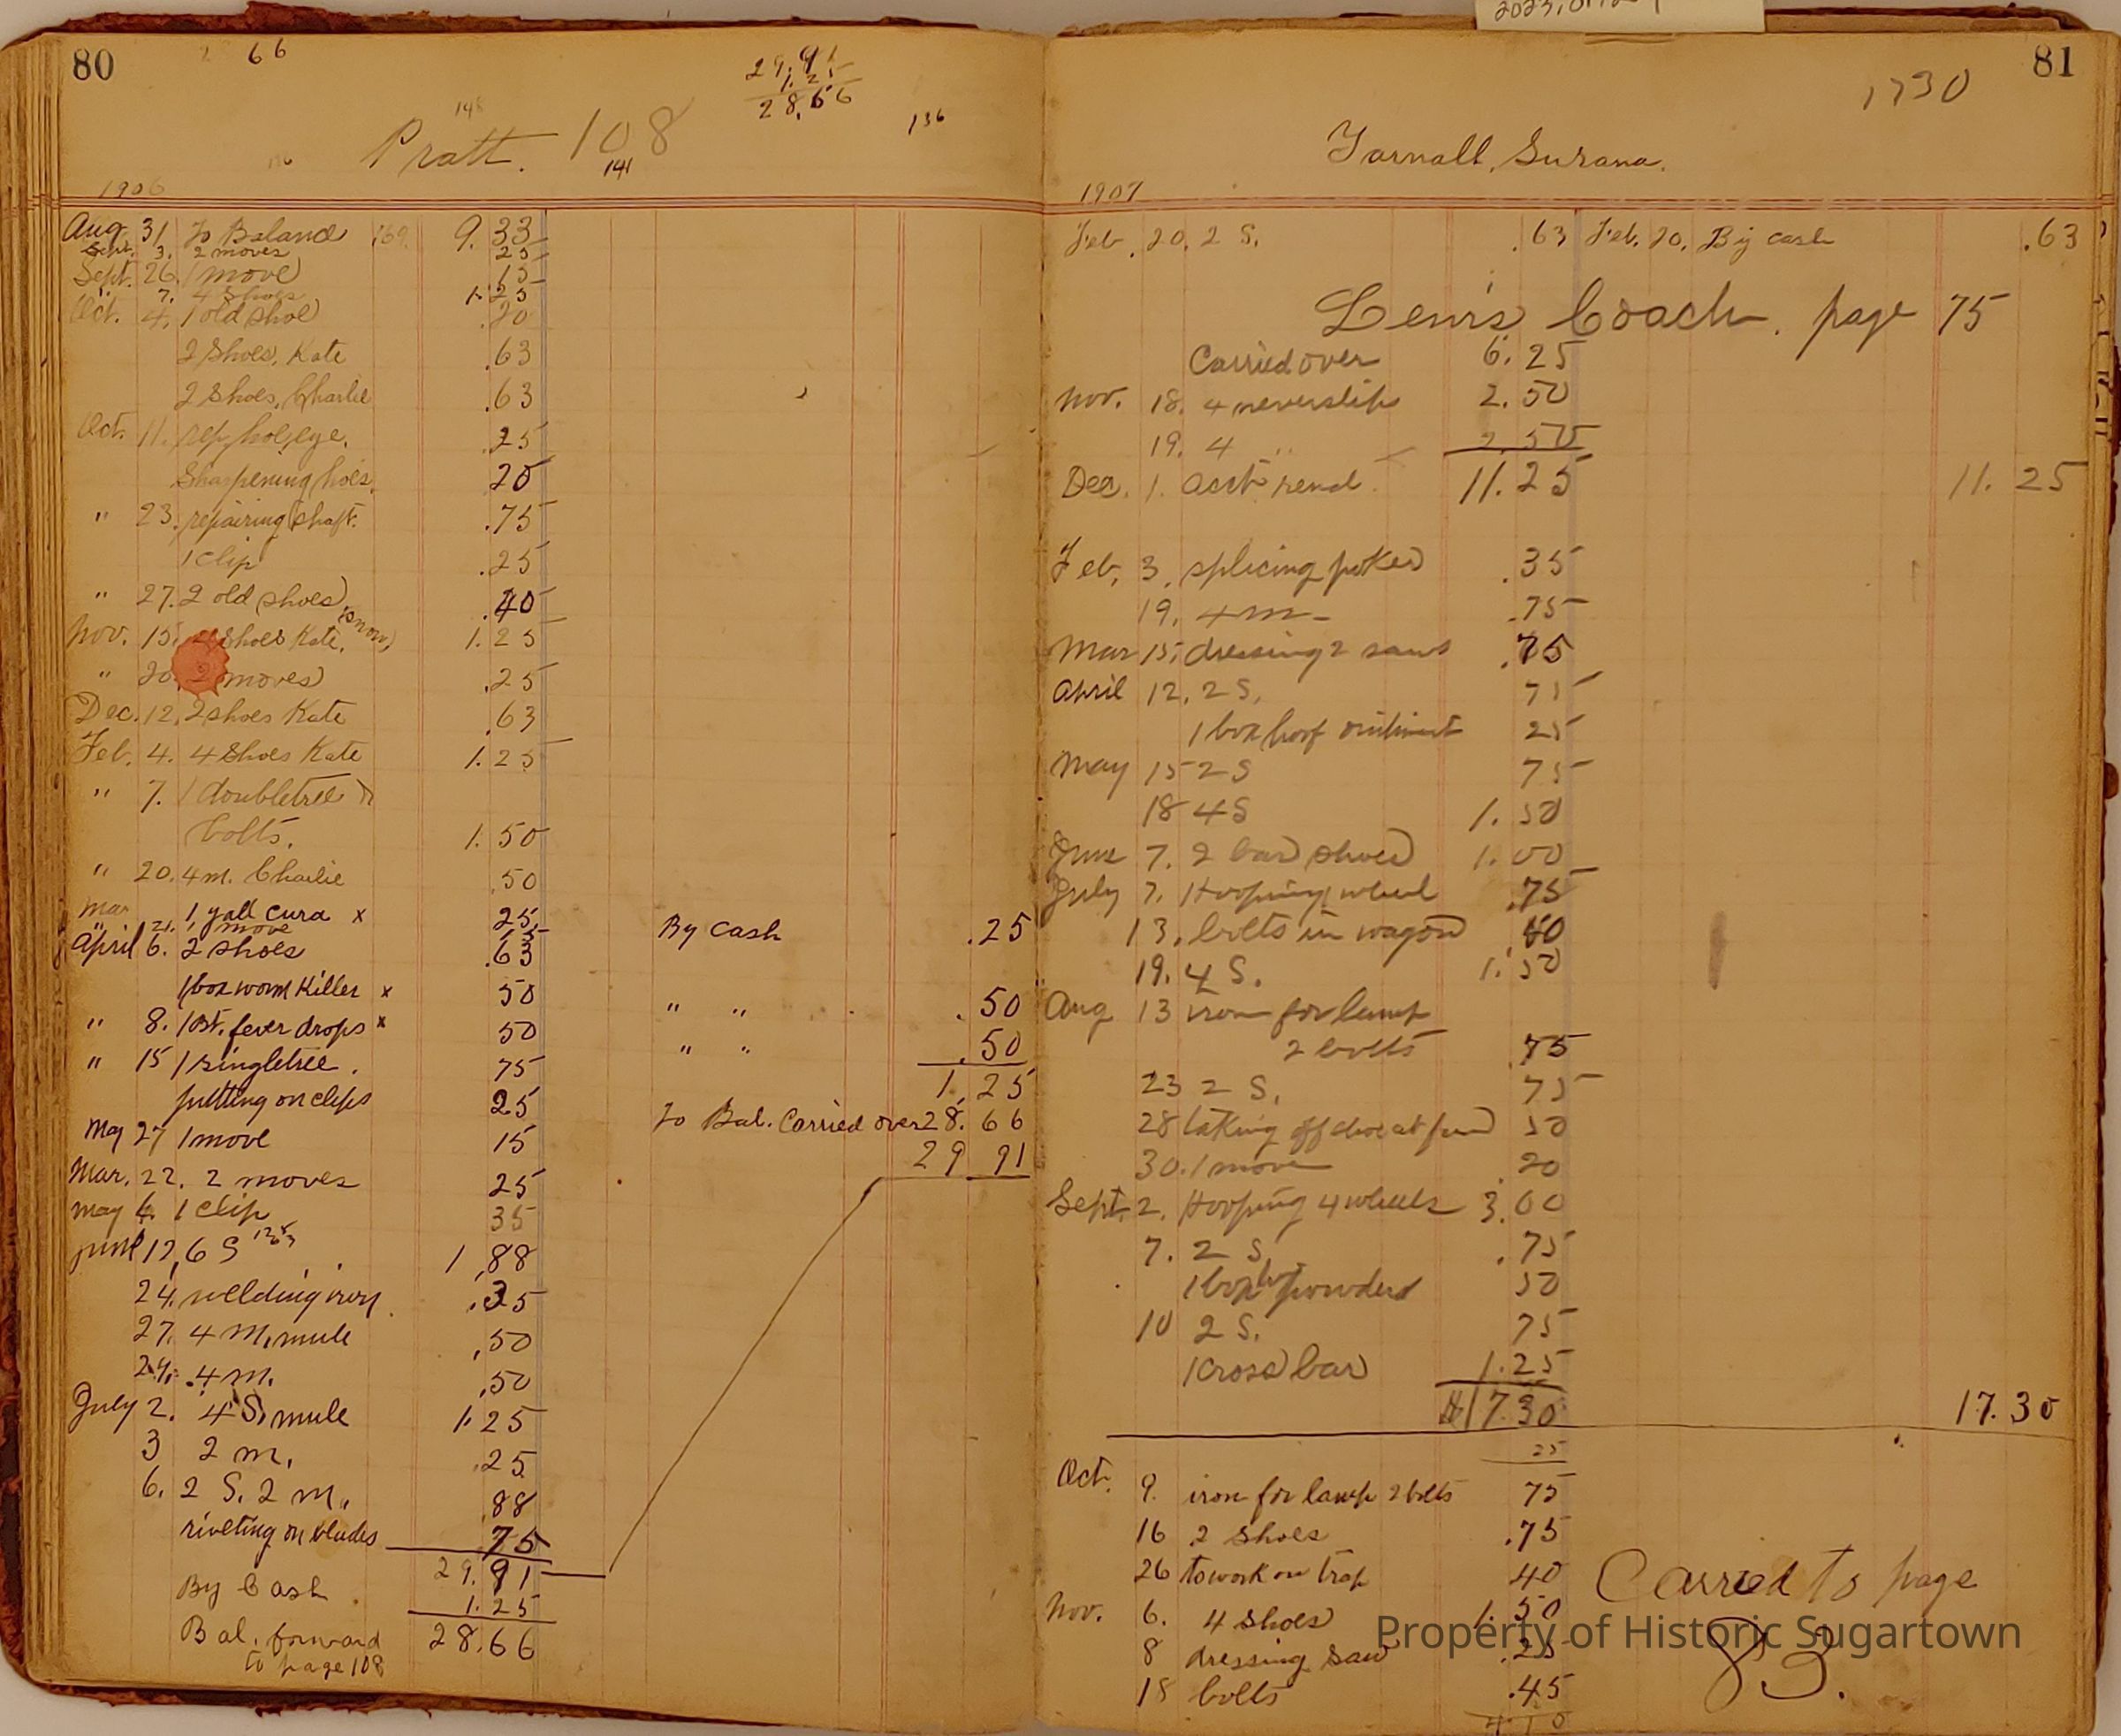 80
66
29.91
1.25
28.66
148
136
Pratt. 108
141
1906
Aug 31 To Baland 9.33
Sept. 3. 2 moves 25
Sept. 26. 1 move 15
" 7. 4 Shoes 1.25
Oct. 4. 1 old shoe .20
2 Shoes, Kate .63
2 Shoes, Charlie .63
Oct. 11. rep, hoe, eye. .25
Sharpening hoes. 20
" 23. repairing shaft. .75
1 clip .25
" 27. 2 old shoes .40
Nov. 15. 4 Shoes Kate. (snow) 1.25
" 20. 2 moves .25
Dec. 12. 2 shoes Kate .63
Feb. 4. 4 Shoes Kate 1.25
" 7. 1 doubletree
bolts. 1.50
" 20. 4 m. Charlie .50
Mar 1 gall cura x 25 By cash .25
" 21. 1 move 15
April 6. 2 shoes .63
1 box worm Killer x 50 " " .50
" 8. 1 Bt. fever drops x 50 " " .50
" 15 1 singletree. 75 1.25
putting on clips 25 To Bal. Carried over 28.66
May 27 1 move 15 29 91
Mar. 22. 2 moves 25
May 6. 1 clip 35
June 12, 6 S 1.88
24. welding iron .35
27. 4 m. mule .50
29. 4 m. .50
July 2. 4 S. mule 1.25
3 2 m. .25
6. 2 S. 2 m. .88
riveting on blades .75
29.91
By Cash 1.25
Bal. forward 28.66
to page 108
81
1730
Yarnall, Susana.
1907
Feb. 20. 2 S. .63 Feb. 20. By cash .63
Lewis Coach. page 75
Carried over 6.25
Nov. 18. 4 neverslips 2.50
19. 4 " 2.50
Dec. 1. acct rend. 11.25 11.25
Feb. 3. splicing poker .35
19. 4 m .75
Mar 15. dressing 2 saws .75
April 12. 2 S. 75
1 box hoof ointment 25
May 15 2 S 75
18 4 S 1.50
June 7. 2 bar shoes 1.00
July 7. Hooping wheel .75
13. bolts in wagon .40
19. 4 S. 1.50
Aug 13 iron for lamp
2 bolts .75
23 2 S. 75
28 taking off shoe 50
30. 1 move .20
Sept. 2. Hooping 4 wheels 3.00
7. 2 S. .75
1 box powders 50
10 2 S. 75
1 cross bar 1.25
$17.30 17.30
25
Oct. 9. iron for lamp 2 bolts 75
16 2 shoes .75
26 to work on trap 40
Carried to page
83.
Nov. 6. 4 shoes 1.50
8 dressing saw .25
18 bolts .45
4 10
Property of Historic Sugartown